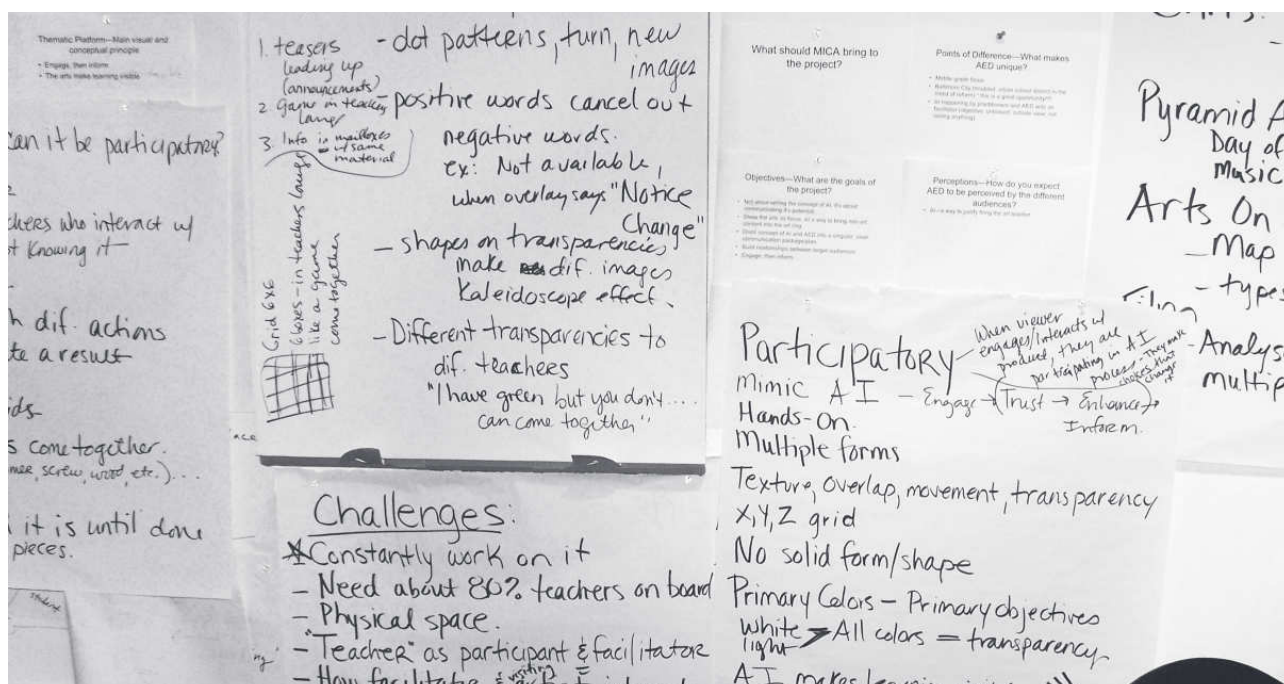 Thematic Platform—Main visual and
conceptual principle
• Engage, then inform
• The arts make learning visible
can it be participatory?
chers who interact w/
t knowing it
dif. actions
te a result
s come together.
screw, wood, etc.)...
it is until done
pieces.
student
1. teasers
leading up
(announcements)
2. game in teachers
lounge
3. Info in mailboxes
w/same
material
Grid 6x6
6 boxes - in teachers lounge
like a game
come together
- dot patterns, turn, new
images
- positive words cancel out
negative words.
ex: Not available,
when overlay says "Notice
Change"
- shapes on transparencies
make dif. images
Kaleidoscope effect.
- Different transparencies to
dif. teachees
"I have green but you don't....
can come together"
Challenges:
Constantly work on it
- Need about 80% teachers on board
- Physical space.
- "Teacher" as participant & facilitator
- How facilitate & visiting
What should MICA bring to
the project?
Points of Difference—What makes
AED unique?
• Middle grade focus
Objectives—What are the goals of
the project?
• Engage, then inform
Perceptions—How do you expect
AED to be perceived by the different
audiences?
Participatory - When viewer
engages/interacts w/
product, they are
participating in AI
process - They make
choices that
change it
Mimic AI - Engage → Trust → Enhance →
Inform.
Hands-On.
Multiple forms
Texture, overlap, movement, transparency
X, Y, Z grid
No solid form/shape
Primary Colors - Primary objectives
White light > All colors = transparency
AI makes
Pyramid A
Day of
Music
Arts On
- Map
- types
Filing
- Analys
multip